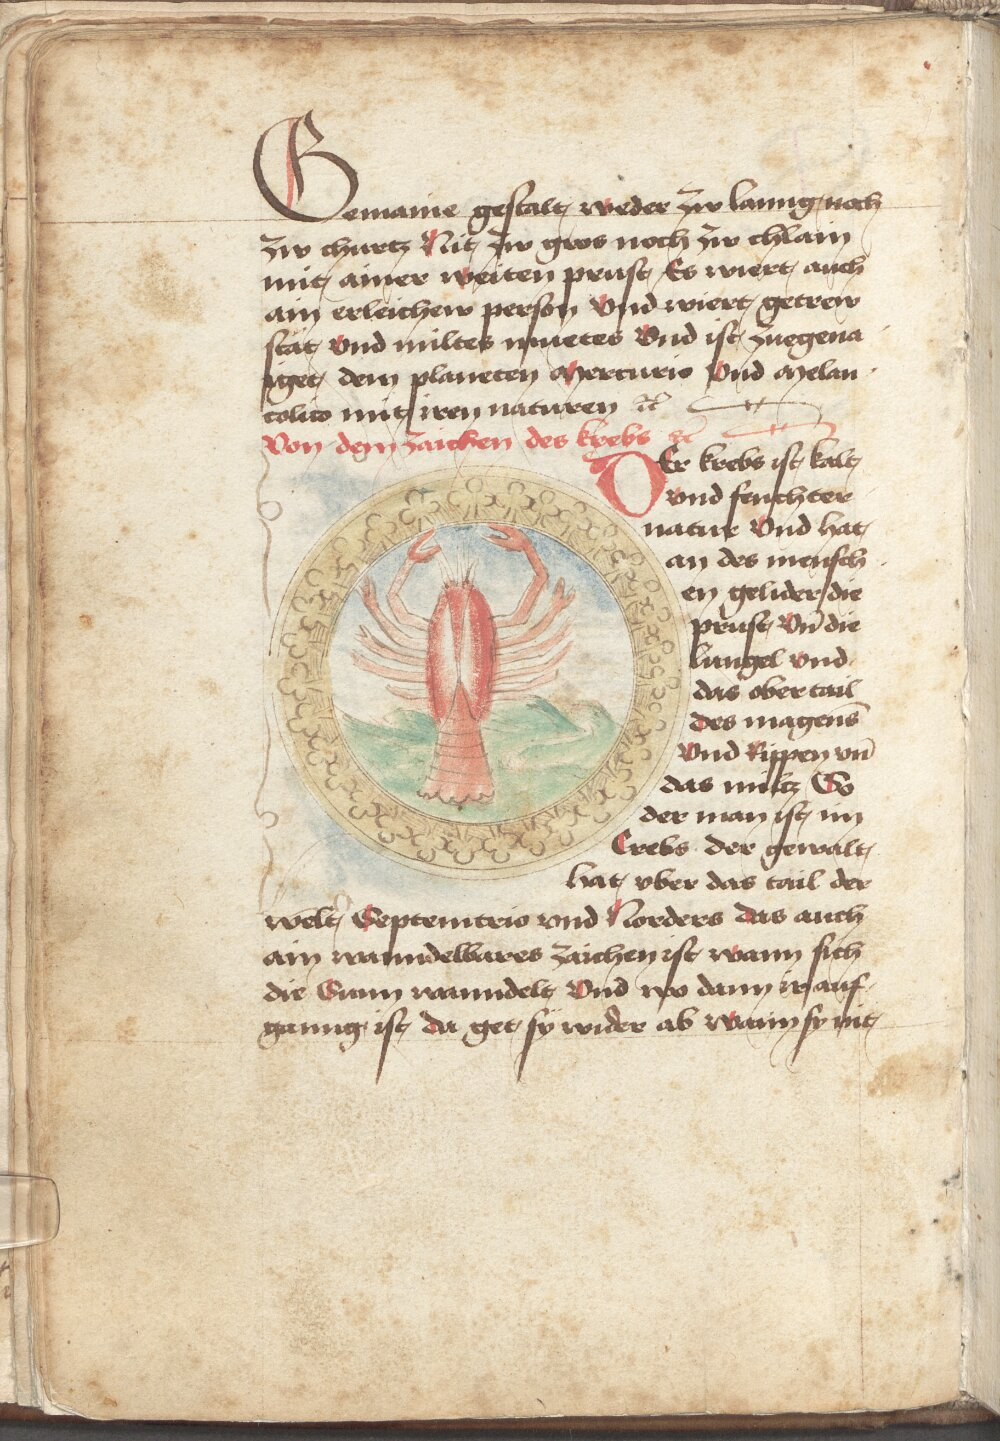 Gemaine gestalt weder zw lanng noch
zw churtz Nit zw gros noch zw chlain
mit ainer weiten prust Es wiert auch
ain erleichew person Vnd wiert getrew
stät Vnd miltes muetes Vnd ist zuegena
iget dem planeten Mercurio Vnd Melan
colico mit iren naturen ꝛc
Von dem zaichen des krebs ꝛc
DEr krebs ist kalt
vnd feuchter
natur Vnd hat
an des mensch
en gelider die
prust Vn̄ die
lungel vnd
das ober tail
des magens
Vnd Rippen vn̄
das miltz So
der man ist im
Crebs der gewalt
hat vber das tail der
welt Septemtrio vnd Norders das auch
ain wanndelbares zaichen ist wann sich
die Sunn wanndelt Vnd wo dann ir auf
ganng ist da get sy wider ab wann sy nit